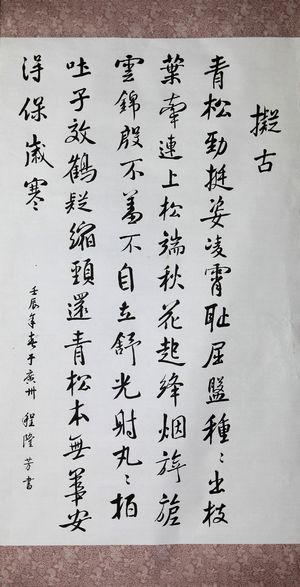 擬古
青松勁挺姿凌霄恥屈盤種〻出枝
葉牽連上松端秋花起絳烟旖旎
雲錦殷不羞不自立舒光射丸〻柏
吐子效鶴疑縮頸還青松本無華安
得保歲寒
壬辰年春于廣州 程隆芳書